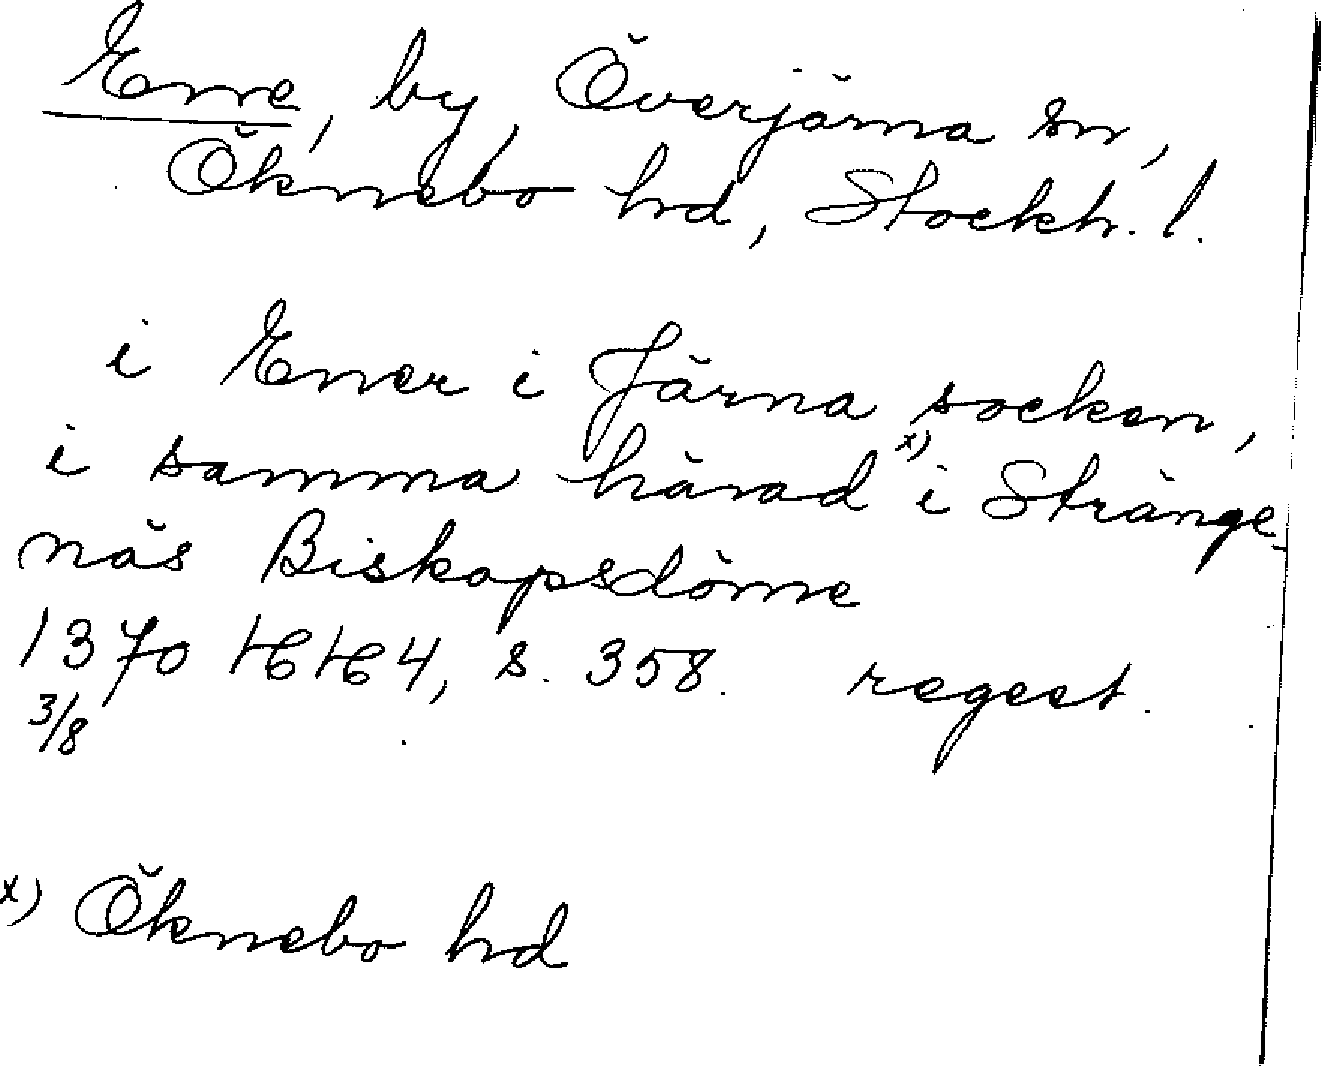 Ene, by, Överjärna sn,
Öknebo hd, Stockh. l.
i Ener i Järna socken,
i samma härad x) i Stränge-
näs Biskopsdöme
1370 HH 4, s. 358. regest.
3/8
x) Öknebo hd